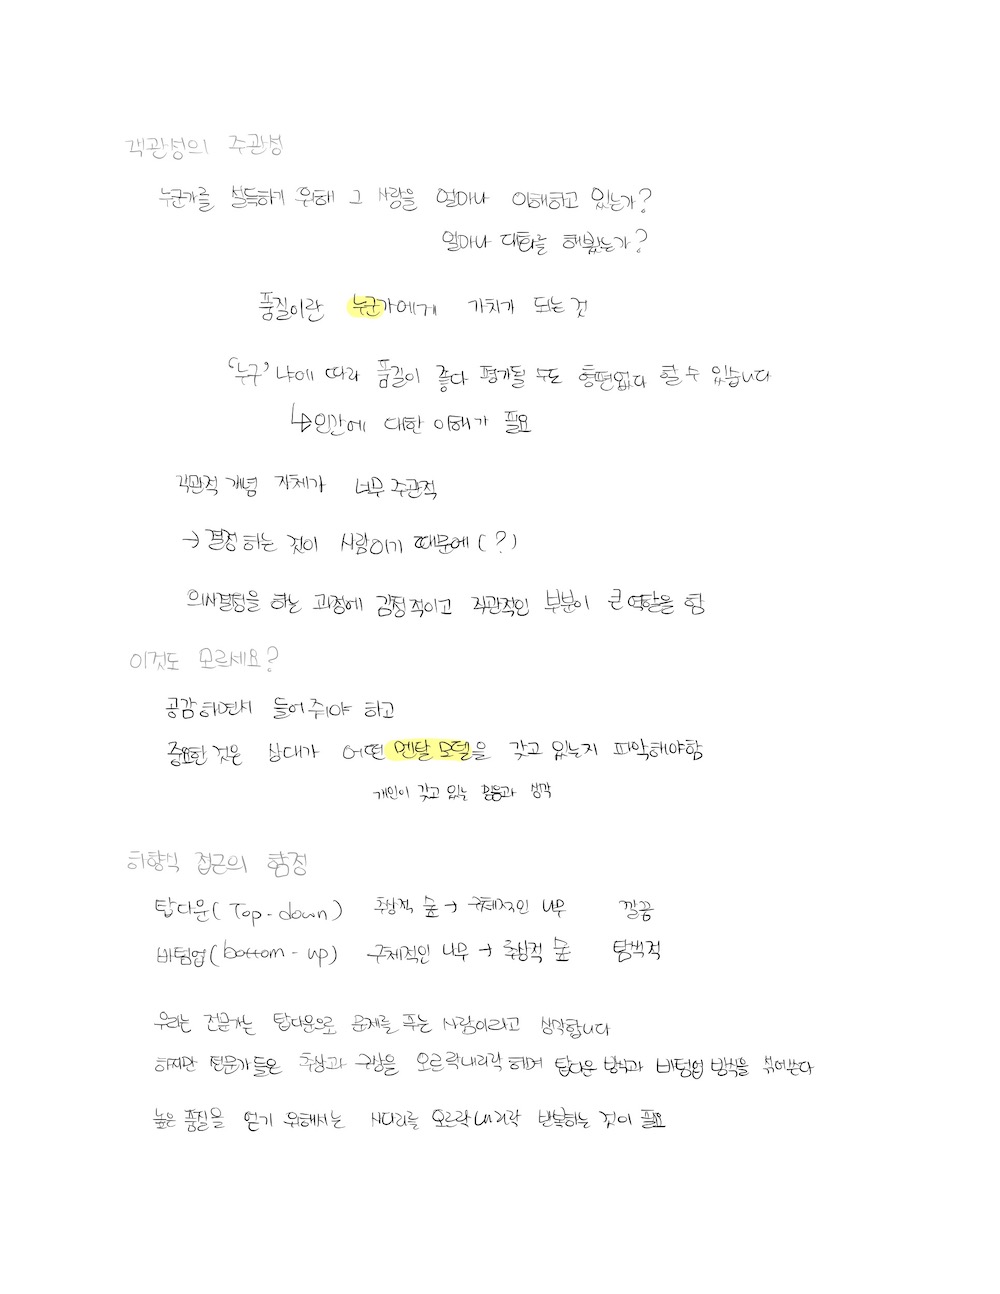 객관성의 주관성
누군가를 설득하기 위해 그 사람을 얼마나 이해하고 있는가?
얼마나 대화를 해봤는가?
품질이란 누군가에게 가치가 되는 것
'누구'냐에 따라 품질이 좋다 평가될 수도 형편없다 할 수 있습니다
↳인간에 대한 이해가 필요
객관적 개념 자체가 너무 주관적
→ 결정하는 것이 사람이기 때문에(?)
의사결정을 하는 과정에 감정적이고 직관적인 부분이 큰 역할을 함
이것도 모르세요?
공감하면서 들어줘야 하고
중요한 것은 상대가 어떤 멘탈 모델을 갖고 있는지 파악해야함
개인이 갖고 있는 믿음과 생각
하향식 접근의 함정
탑다운(Top-down) 추상적 숲 → 구체적인 나무 깔끔
바텀업(bottom-up) 구체적인 나무 → 추상적 숲 탐색적
우리는 전문가는 탑다운으로 문제를 푸는 사람이라고 생각합니다
하지만 전문가들은 추상과 구상을 오르락내리락 하며 탑다운 방식과 바텀업 방식을 섞어쓴다
높은 품질을 얻기 위해서는 사다리를 오르락내리락 반복하는 것이 필요